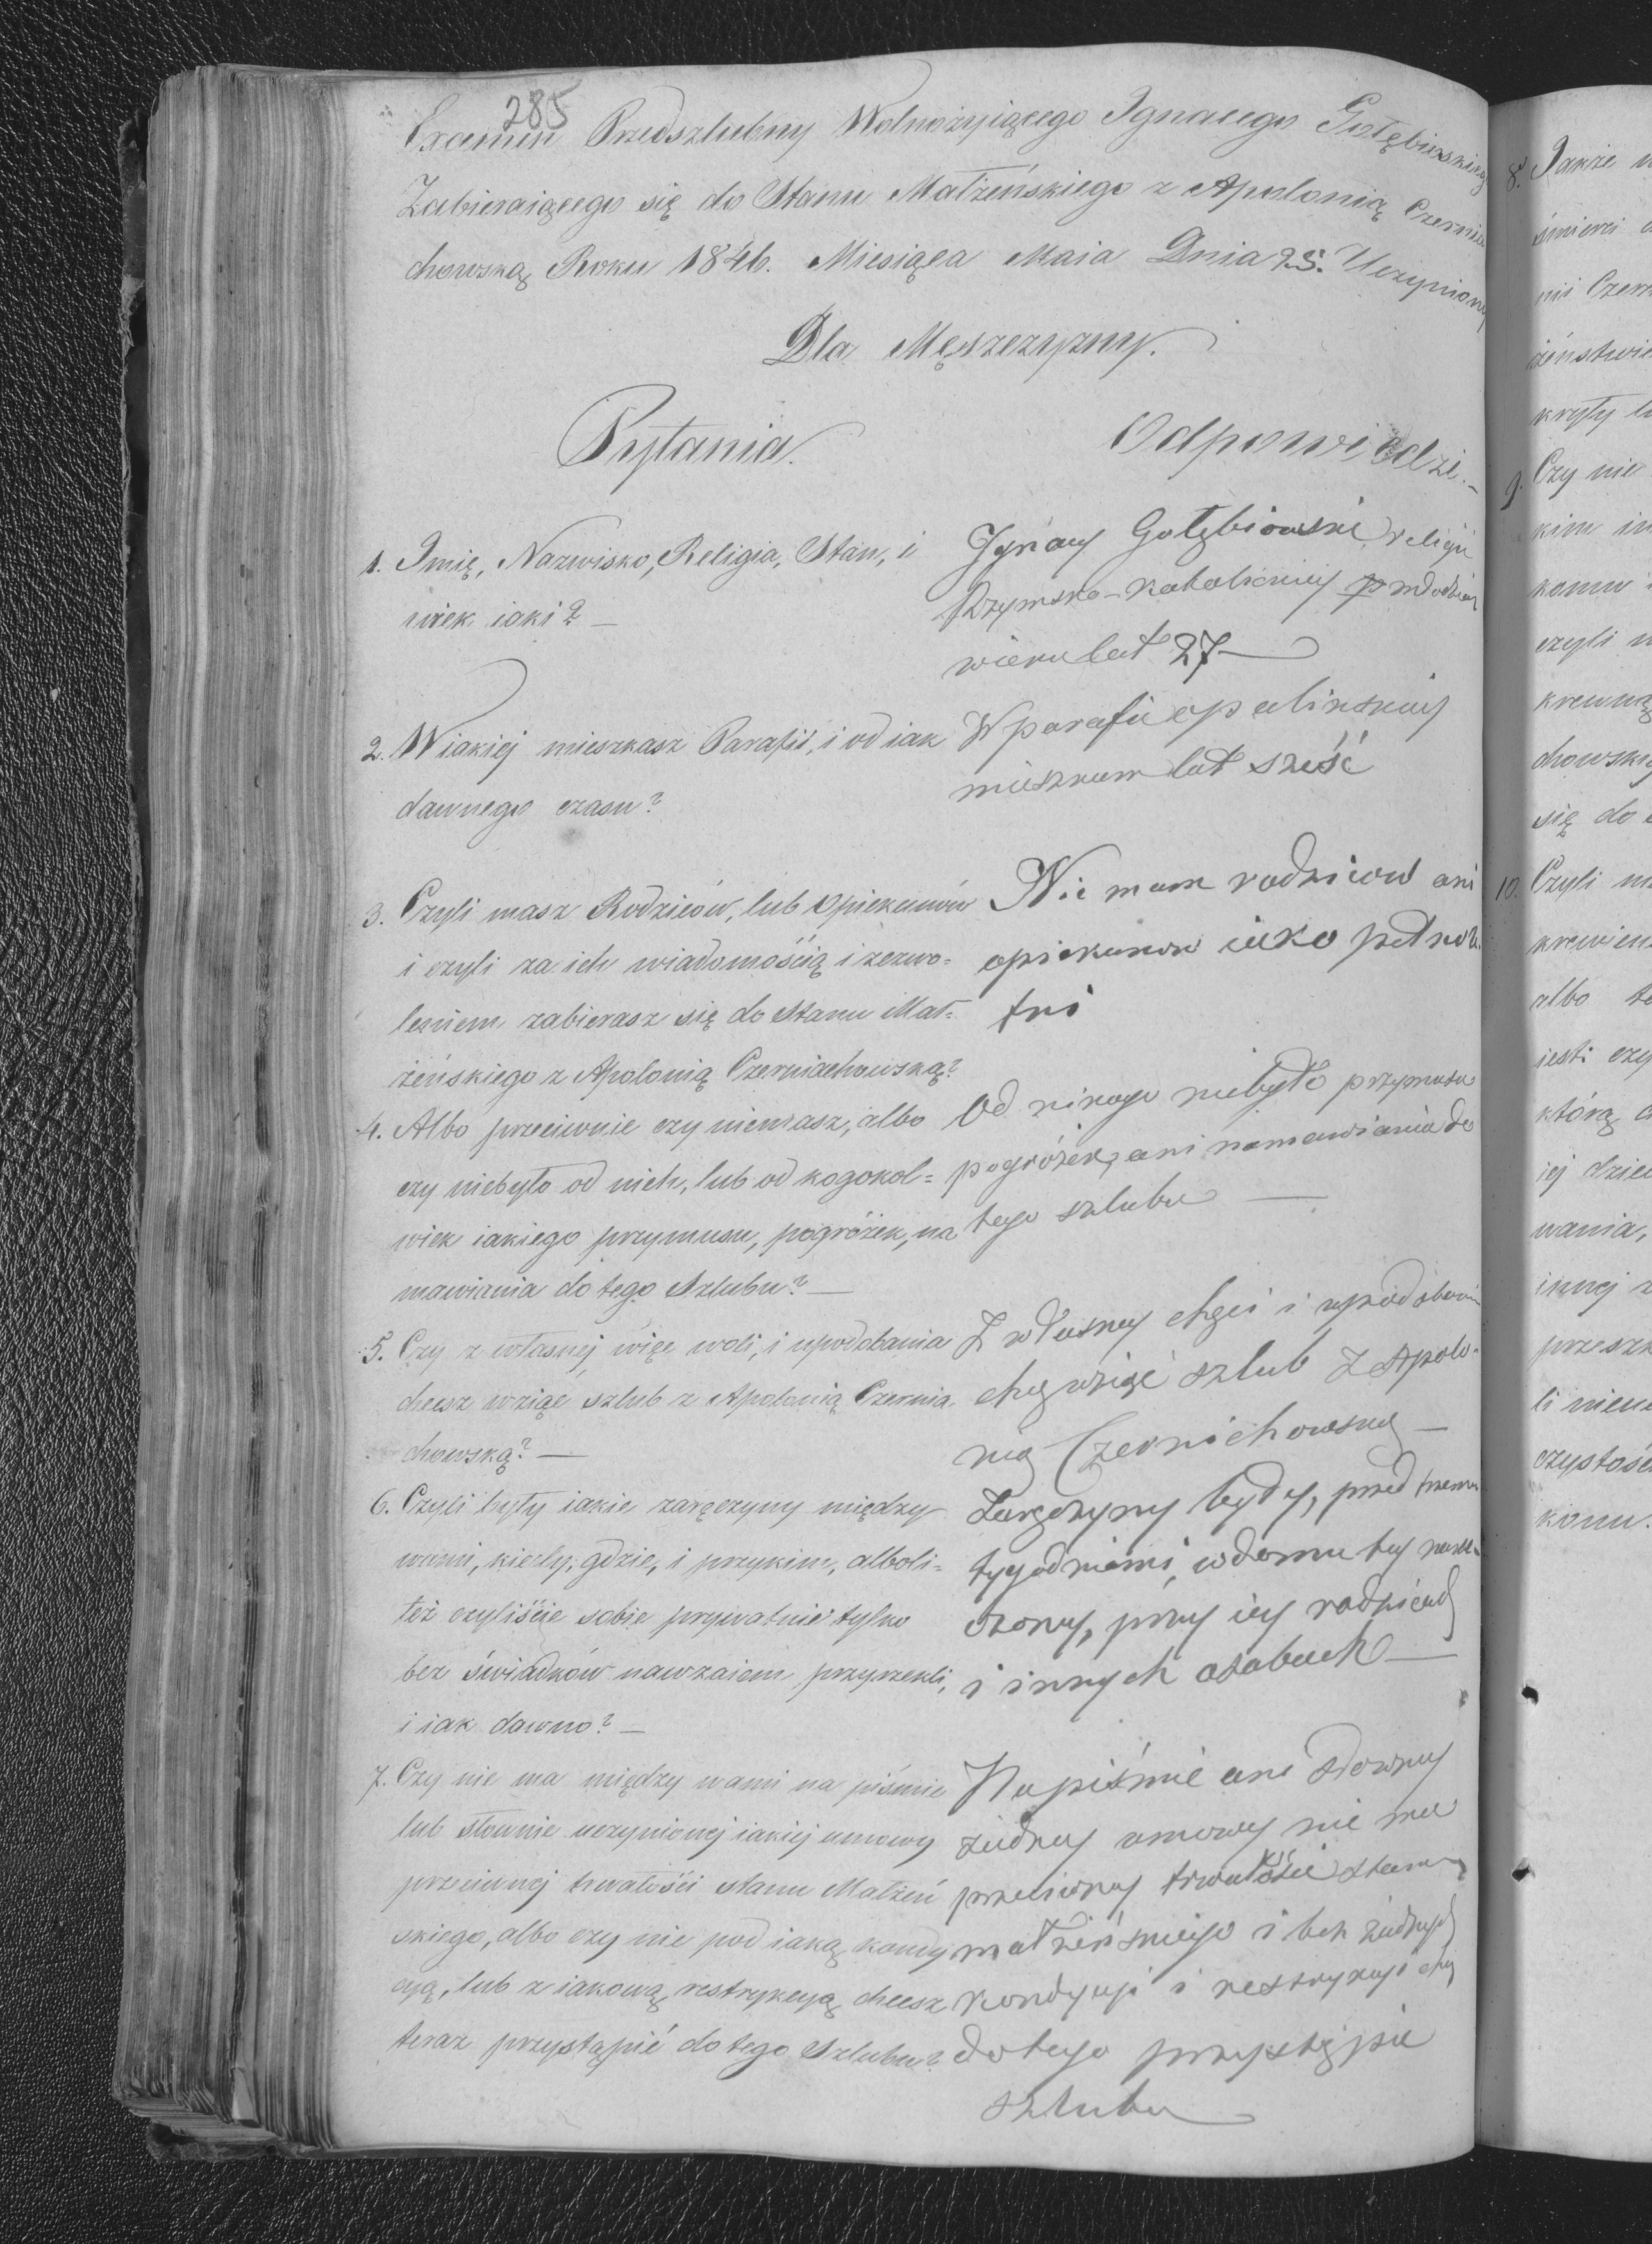 285
Examen Przedszlubny Wolnożyiącego Ignacego Gołębiowskiego
Zabieraiącego się do Stanu Małżeńskiego z Apolonią Czernia
chowską Roku 1846. Miesiąca Maia Dnia 25. Uczyniony
Dla Męszczyzny.
Pytania.
Odpowiedzi.
1. Imię, Nazwisko, Religia, Stan, i
wiek iaki?
Ignacy Gołębiowski religii
Rzymsko-Katolickiey młodzian
wieku lat 27
2. W iakiej mieszkasz Parafii, i od iak
dawnego czasu?
W parafii opalinskiey
mieszkam lat sześć
3. Czyli masz Rodziców, lub Opiekunów
i czyli za ich wiadomością i zezwo=
leniem zabierasz się do Stanu Mał=
żeńskiego z Apolonią Czerniachowską?
Nie mam rodzicow ani
opiekunow iako pełno
tni
4. Albo przeciwnie czy niemasz, albo
czy niebyło od nich, lub od kogokol=
wiek iakiego przymusu, pogróżek, na
mawiania do tego Szlubu?
Od nikogo niebyło przymusu
pogróżek, ani namawiania do
tego szlubu
5. Czy z własnej więc woli, i upodobania
chcesz wziąć szlub z Apolonią Czernia
chowską?
Z własney chęci i upodobania
chcę wziąć szlub z Apolo-
nią Czernichowską
6. Czyli były iakie zaręczyny między
wami, kiedy, gdzie, i przykim, alboli=
też czyliście sobie prywatnie tylko
bez świadków nawzaiem przyrzekli,
i iak dawno?
Zaręczyny były, przed trzema
tygodniami, w domu tey narze-
czoney, przy iey rodzicach
i innych osobach
7. Czy nie ma między wami na piśmie
lub słownie uczynionej iakiej umowy
przeciwnej trwałości stanu Małżeń
skiego, albo czy nie pod iaką kondy
cyą, lub z iakową restrykcyą chcesz
teraz przystąpić do tego Szlubu?
Na piśmie ani słowney
żadney umowy nie ma
przeciwney trwałości stanu
małżeńskiego i bez żadnych
kondycyi i restrykcyi chcę
do tego przystąpić
szlubu
8. Jakże
śmierci
nii Czern
żeństwie
kryty
9. Czy nie
kim
komu
czyli
krewną
chowską
się do
10. Czyli
krewień
albo
iesti czy
którą
iej
wania,
innej
przeszk
li
czystość
komu.